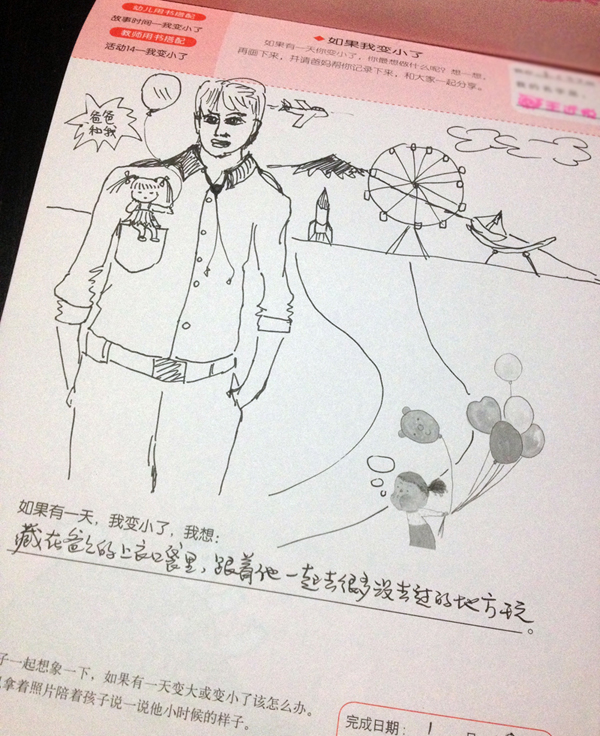 幼儿用书搭配
故事时间—我变小了
教师用书搭配
活动14—我变小了
如果我变小了
如果有一天你变小了，你最想做什么呢？想一想，
再画下来，并请爸妈帮你记录下来，和大家一起分享。
爸爸
和我
如果有一天，我变小了，我想：
藏在爸爸的上衣口袋里，跟着他一起去很多没去过的地方玩。
子一起想象一下，如果有一天变大或变小了该怎么办。
拿着照片陪着孩子说一说他小时候的样子。
完成日期：1